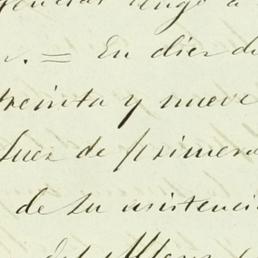 tengo a
. = En diez de
treinta y nueve
Juez de primera
de su asistenci
del